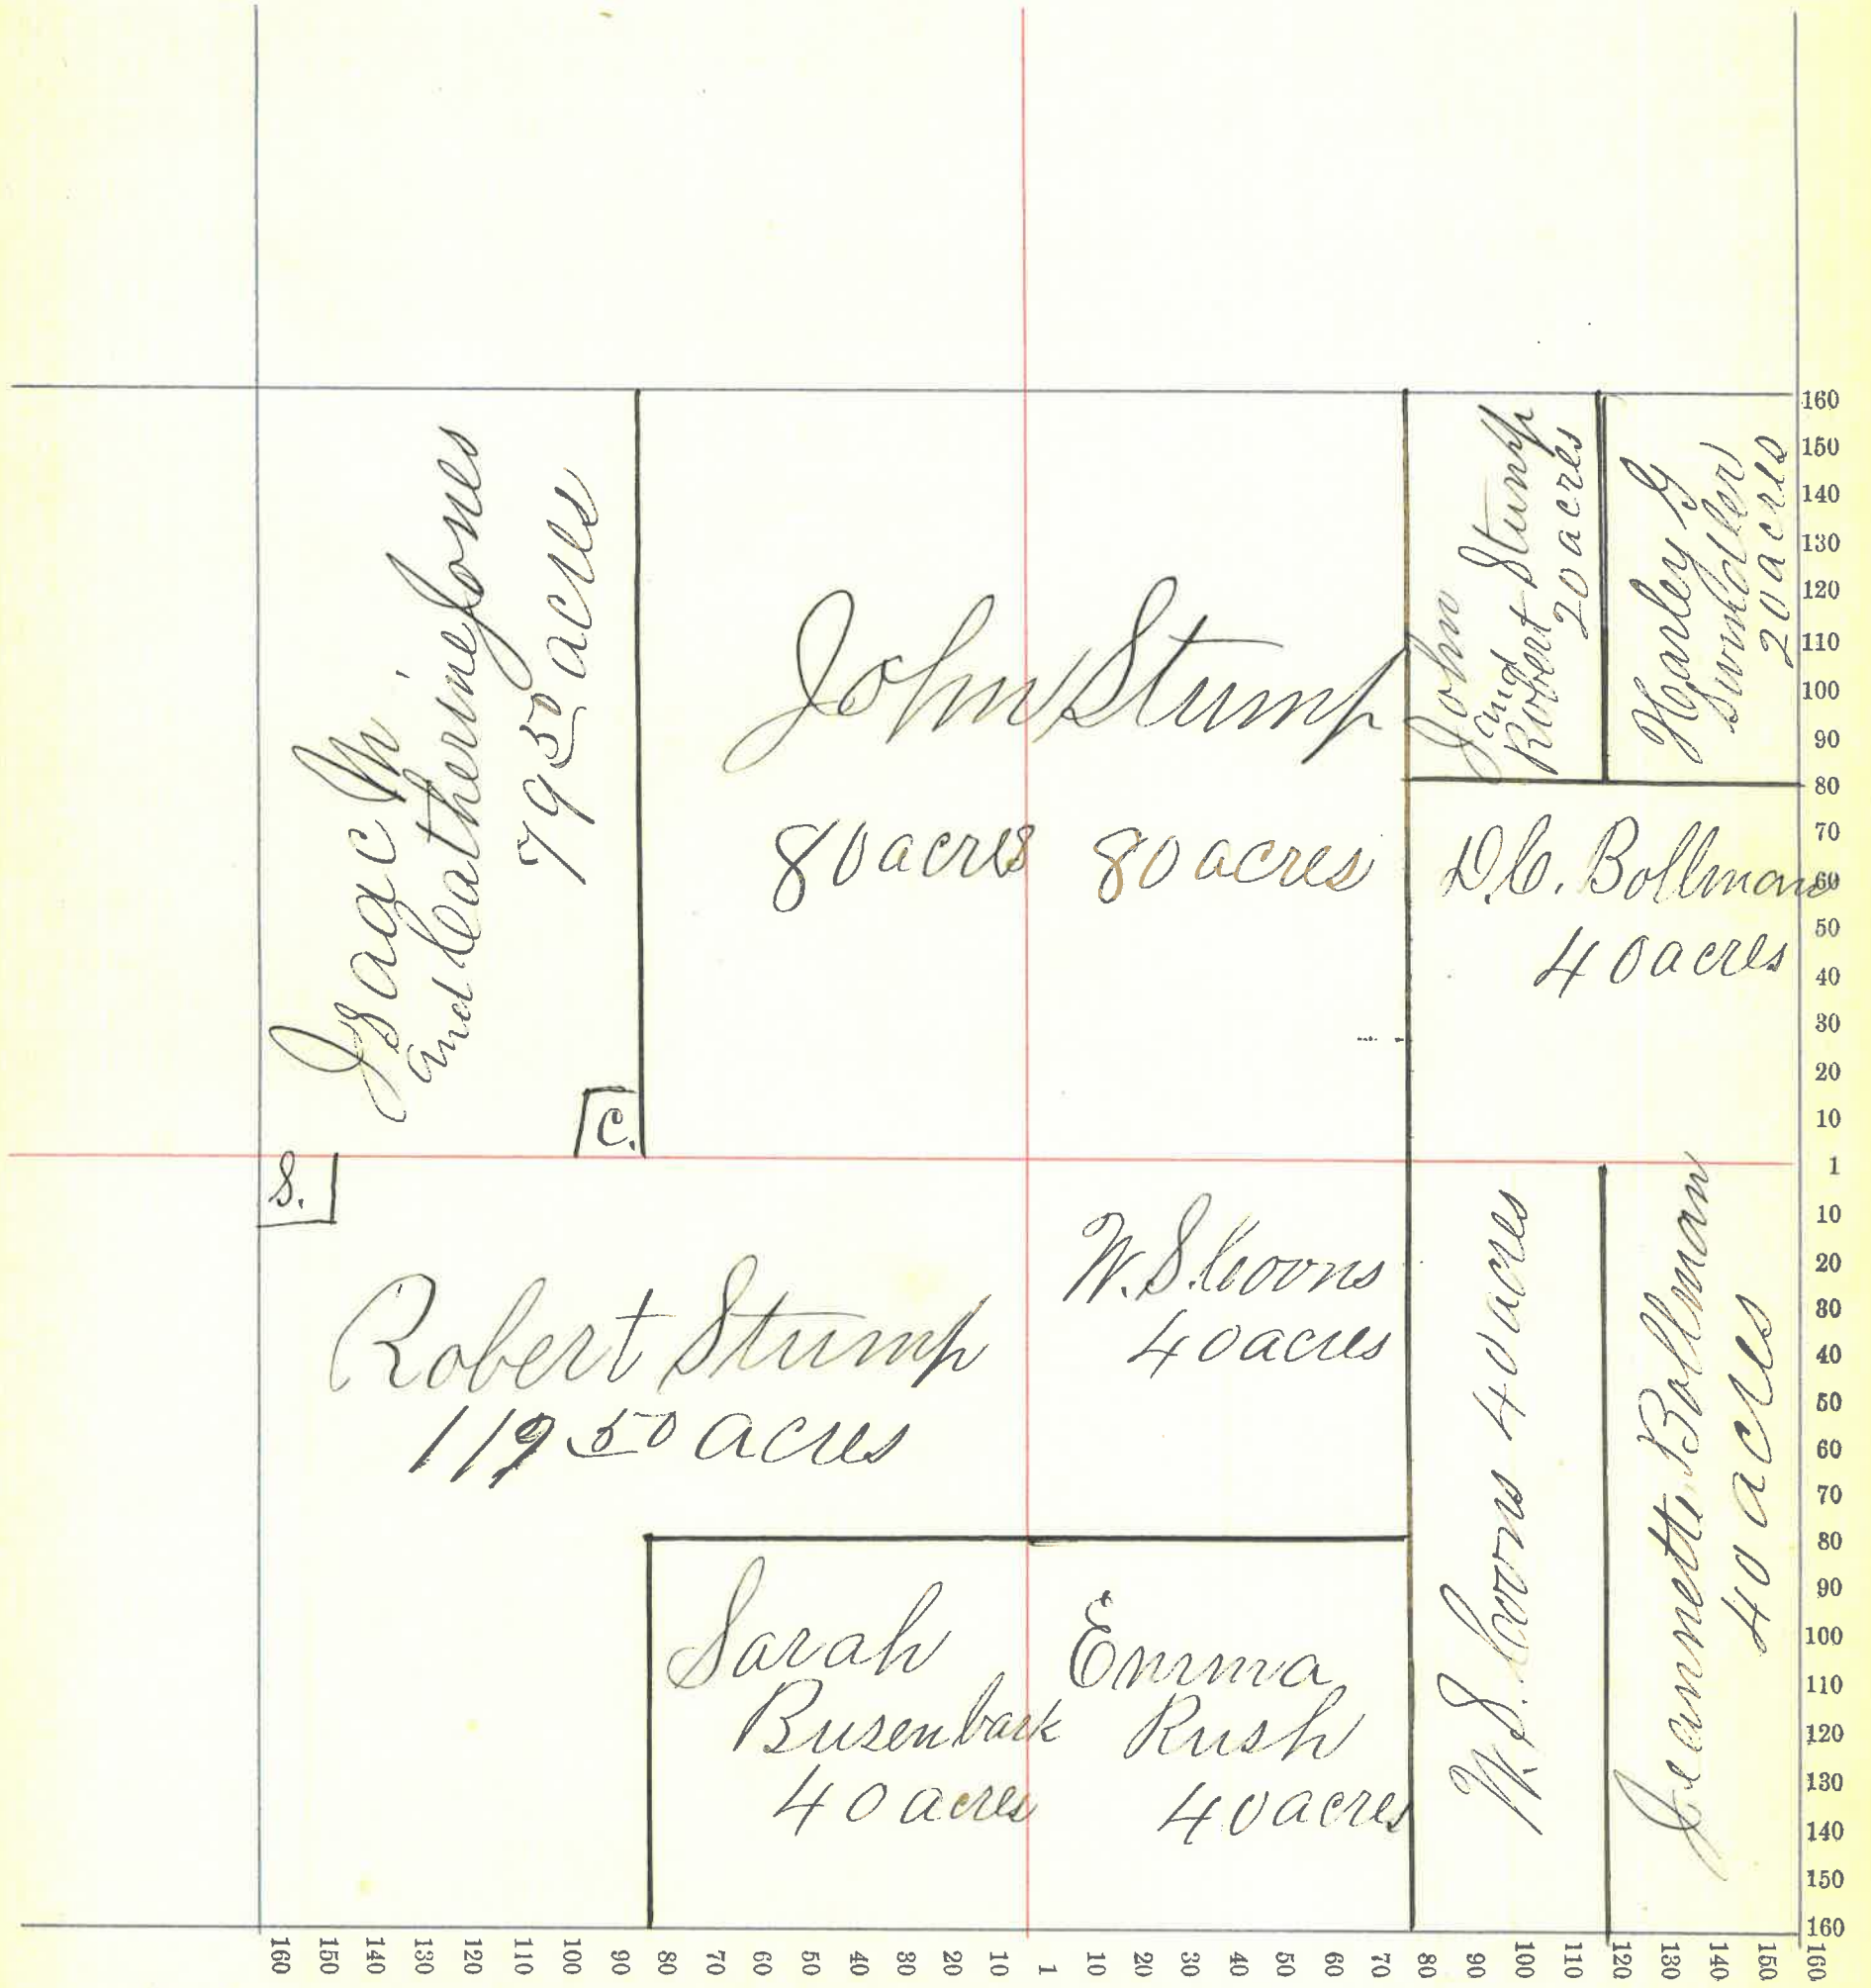 Isaac M.
and Catherine Jones
79 50 acres
C.
John Stump
80 acres 80 acres
John
and
Robert Stump
20 acres
Harley G
Swindler
20 acres
D.C. Bollman
40 acres
S.
Robert Stump
119 50 acres
W. S. Coons
40 acres
W. S. Coons 40 acres
Jeannette Bollman
40 acres
Sarah
Busenbark
40 acres
Emma
Rush
40 acres
160
150
140
130
120
110
100
90
80
70
60
50
40
30
20
10
1
10
20
30
40
50
60
70
80
90
100
110
120
130
140
150
160
160 150 140 130 120 110 100 90 80 70 60 50 40 30 20 10 1 10 20 30 40 50 60 70 80 90 100 110 120 130 140 150 160